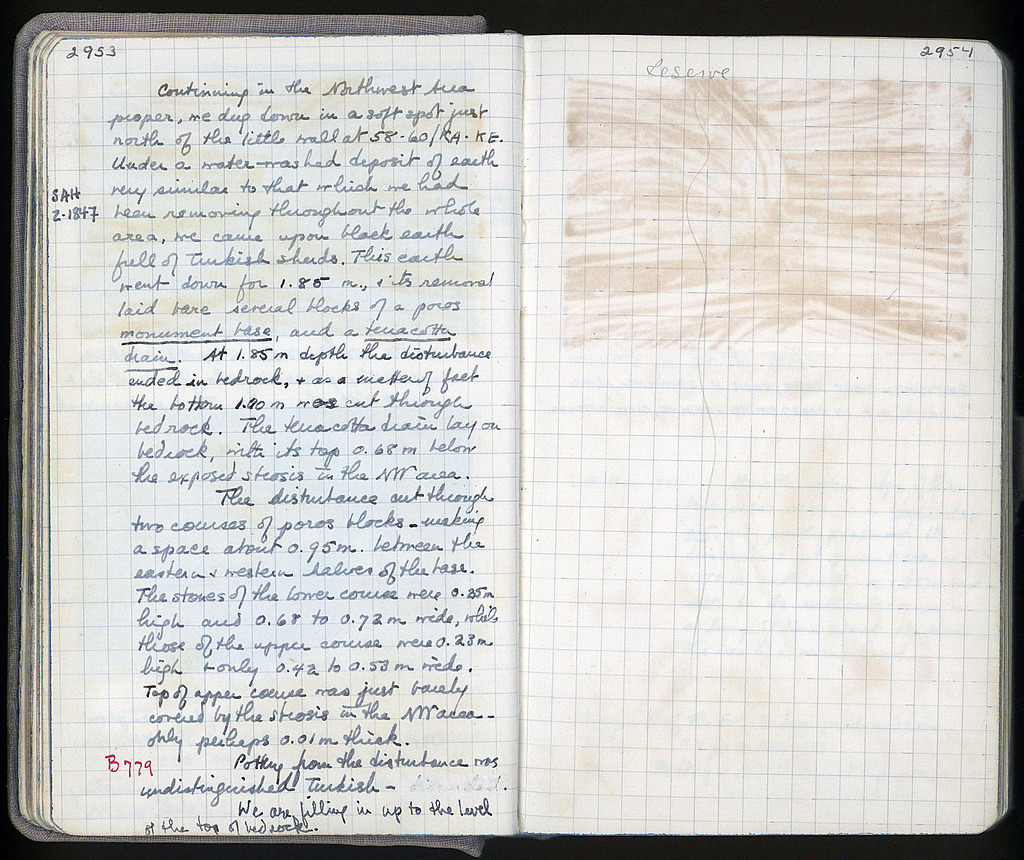 2953
Continuing in the Northwest Area
proper, we dug down in a soft spot just
north of the little wall at 58-60/KA-KE.
Under a water-washed deposit of earth
very similar to that which we had
SAH
2-1847
been removing throughout the whole
area, we came upon black earth
full of Turkish sherds. This earth
went down for 1.85 m., & its removal
laid bare several blocks of a poros
monument base, and a terracotta
drain. At 1.85 m depth the disturbance
ended in bedrock, + as a matter of fact
the bottom 1.20 m was cut through
bedrock. The terracotta drain lay on
bedrock, with its top 0.68 m below
the exposed strosis in the NW area.
The disturbance cut through
two courses of poros blocks - making
a space about 0.95 m. between the
eastern + western halves of the base.
The stones of the lower course were 0.25 m
high and 0.68 to 0.72 m wide, while
those of the upper course were 0.23 m
high + only 0.42 to 0.53 m wide.
Top of upper course was just barely
covered by the strosis in the NW area -
only perhaps 0.01 m thick.
B 779
Pottery from the disturbance was
undistinguished Turkish -
We are filling in up to the level
of the top of bedrock.
2954
Reserve